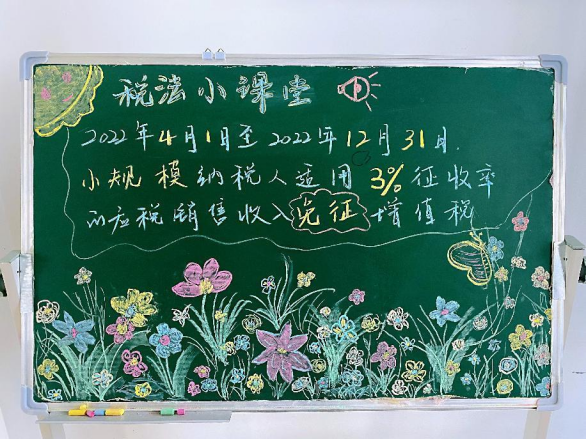 税法小课堂
2022年4月1日至2022年12月31日.
小规模纳税人适用3%征收率
的应税销售收入免征增值税